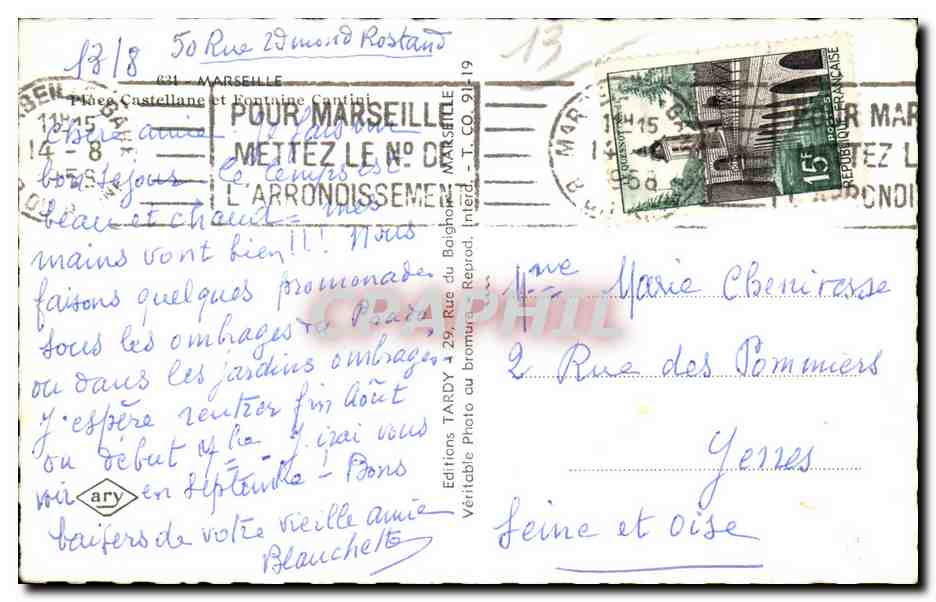 13/8
50 Rue Edmond Rostand
13
631 - MARSEILLE
Place Castellane et Fontaine Cantini
11H15
14-8
POUR MARSEILLE
METTEZ LE No DE
L'ARRONDISSEMENT
Chère amie. Je fais un
bon séjour le temps est
beau et chaud = mes
mains vont bien!!! Nous
faisons quelques promenades
sous les ombrages
ou dans les jardins ombragés
J'espère rentrer fin Août
ou début 7bre. J'irai vous
voir en septembre - Bons
baisers de votre vieille amie
Blanchette
ary
Editions TARDY - 29, Rue du Baignoir, MARSEILLE
Véritable Photo au bromure. Reprod. Interd. - T. CO. 91-19
15F
POSTES
RÉPUBLIQUE FRANÇAISE
LE QUESNOY
1958
Mme Marie Chenivesse
2 Rue des Pommiers
Yerres
Seine et Oise
CPAPHIL